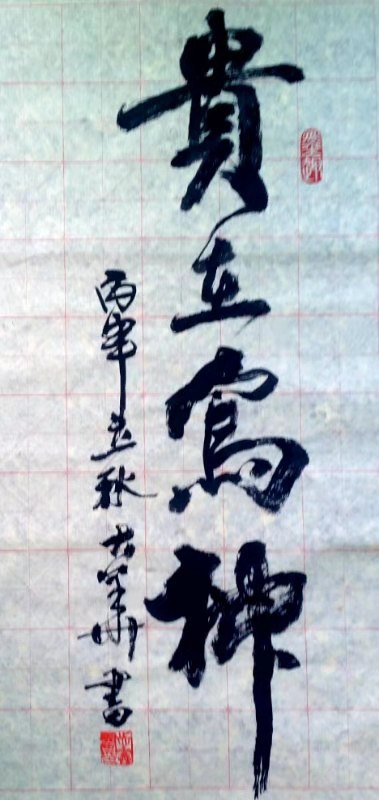 貴在寫神
丙申立秋 書